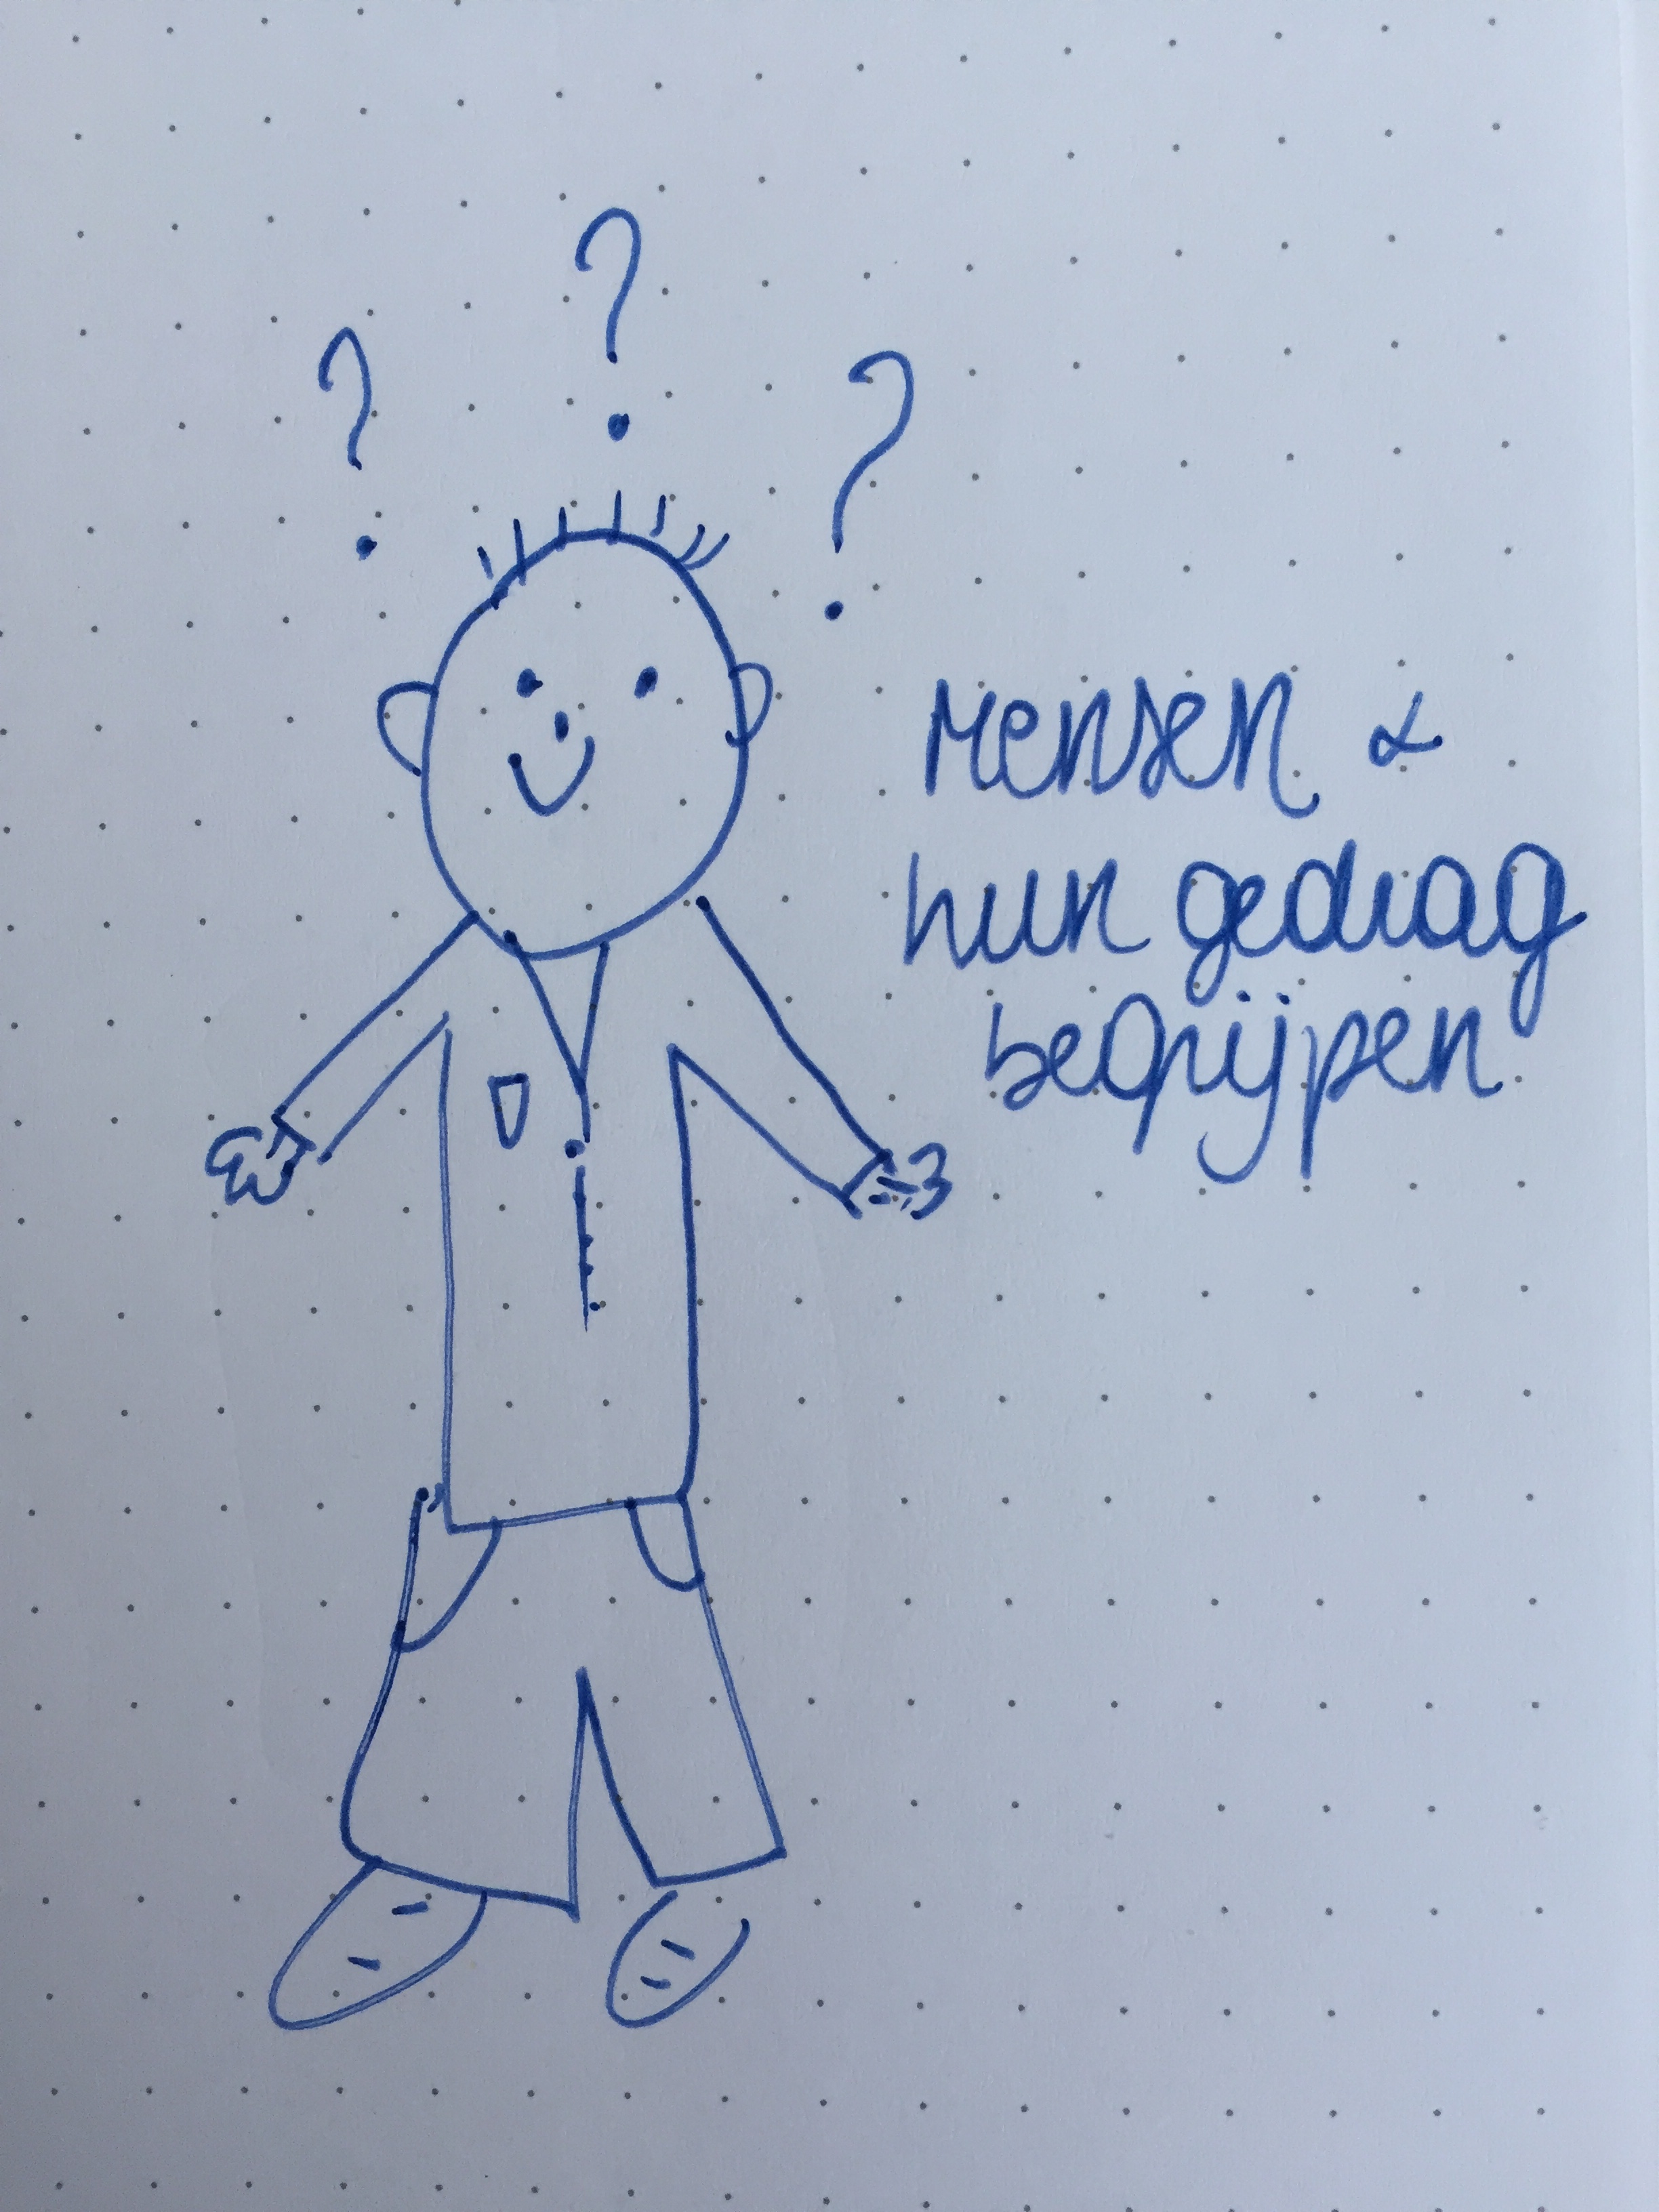 ?
?
?
Mensen &
hun gedrag
begrijpen